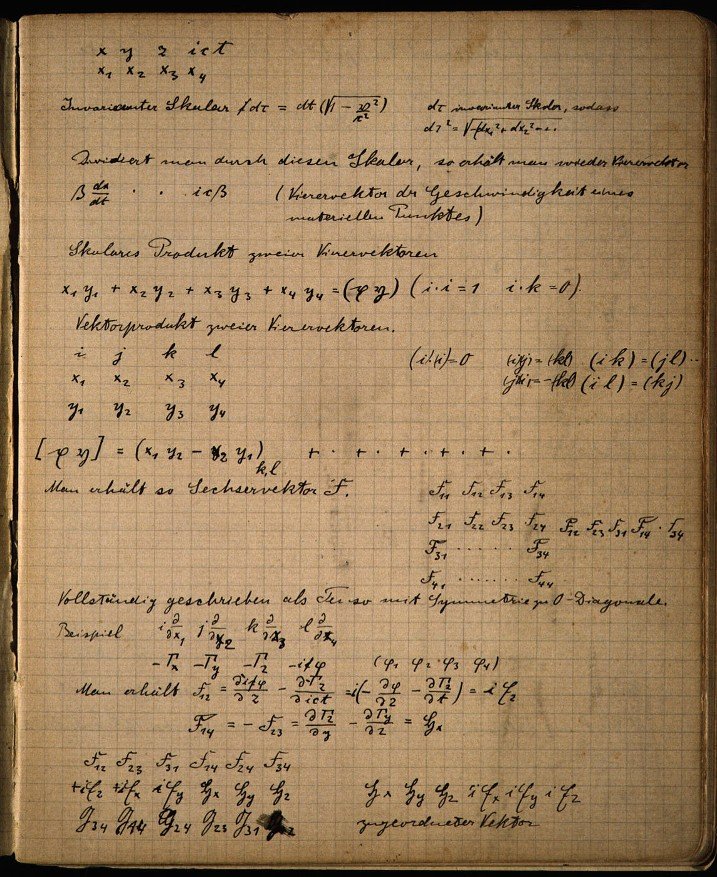 x y z ict
x₁ x₂ x₃ x₄
Invarianter Skalar dτ = dt (√1 − v²/c²) dτ invarianter Skalar, sodass
dτ² = √−(dx₁² + dx₂² − ..
Dividiert man durch diesen Skalar, so erhält man wieder Vierervektor
β dx/dt · · icβ (Vierervektor der Geschwindigkeit eines
materiellen Punktes)
Skalares Produkt zweier Vierervektoren
x₁y₁ + x₂y₂ + x₃y₃ + x₄y₄ = (𝔵 𝔶) (i·i = 1 i·k = 0).
Vektorprodukt zweier Vierervektoren.
i j k l (i i) = 0 (ij) = (kl) (ik) = (jl) ··
x₁ x₂ x₃ x₄ (ji) = −(kl) (il) = (kj)
y₁ y₂ y₃ y₄
[𝔵 𝔶] = (x₁y₂ − x₂y₁)k,l + · + · + · + · + ·
Man erhält so Sechservektor F. F₁₁ F₁₂ F₁₃ F₁₄
F₂₁ F₂₂ F₂₃ F₂₄ F₁₂ F₂₃ F₃₁ F₁₄ · F₃₄
F₃₁ ······ F₃₄
F₄₁ ······ F₄₄
Vollständig geschrieben als Tensor mit Symmetrie zu 0-Diagonale.
Beispiel i ∂/∂x₁ j ∂/∂x₂ k ∂/∂x₃ l ∂/∂x₄
−Γx −Γy −Γz −iφ (φ₁ φ₂ φ₃ φ₄)
Man erhält F₁₂ = ∂iφ/∂z − ∂Γz/∂ict = i(−∂φ/∂z − ∂Γz/∂t) = i𝔈z
F₁₄ = −F₂₃ = ∂Γz/∂y − ∂Γy/∂z = 𝔥x
F₁₂ F₂₃ F₃₁ F₁₄ F₂₄ F₃₄
+i𝔈z +i𝔈x i𝔈y 𝔥x 𝔥y 𝔥z 𝔥x 𝔥y 𝔥z i𝔈x i𝔈y i𝔈z
J₃₄ J₁₄ J₂₄ J₂₃ J₃₁ zugeordneter Vektor